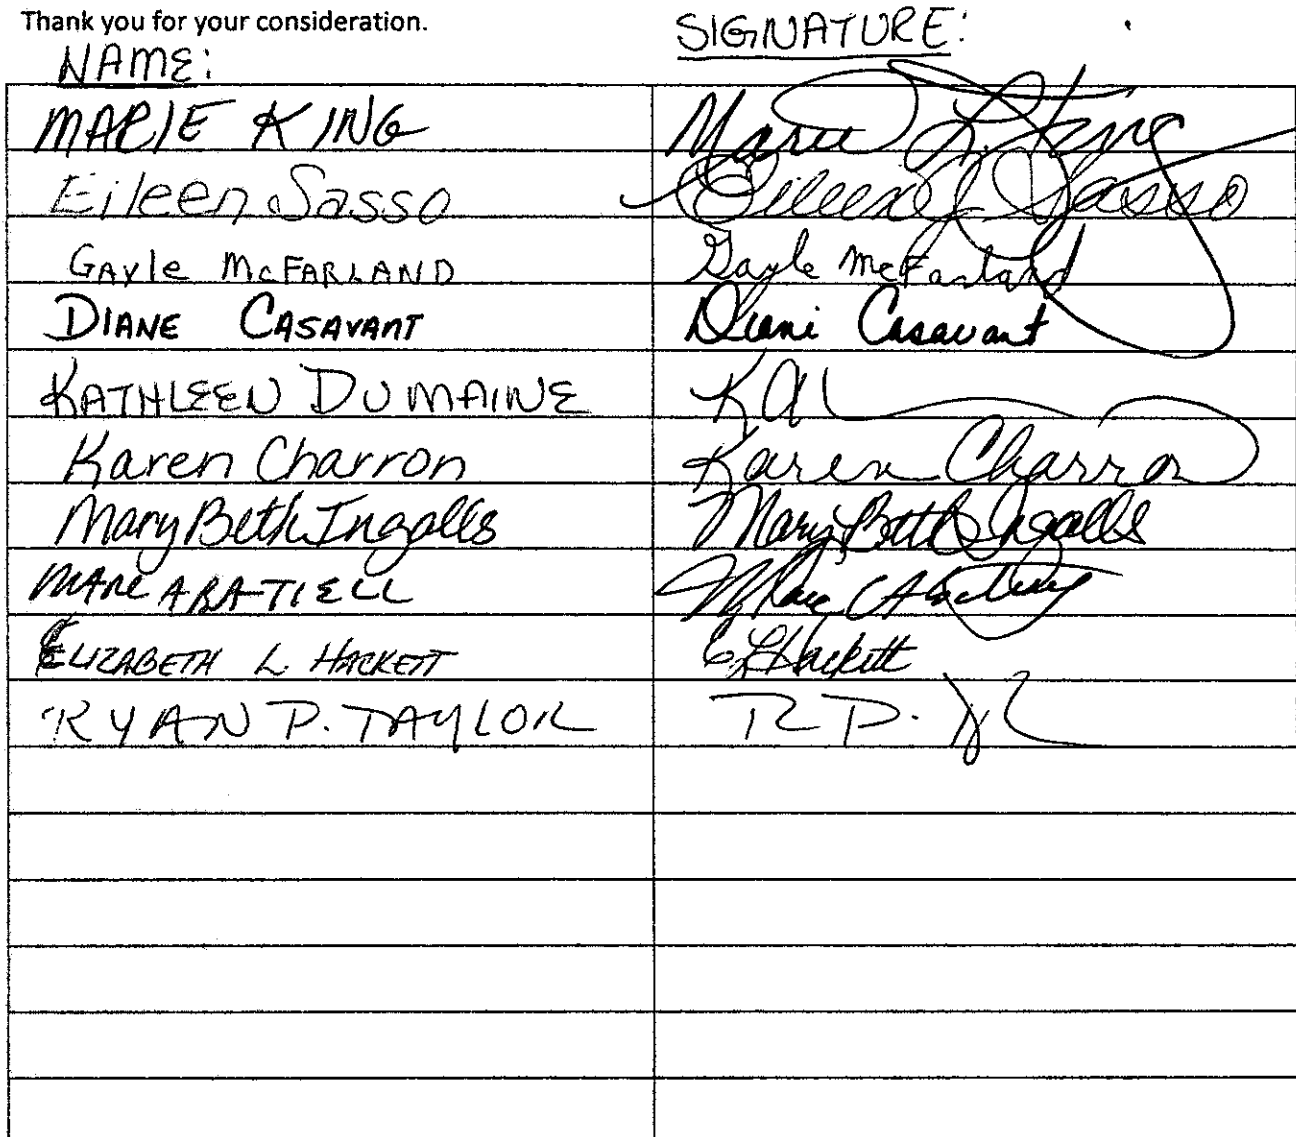 Thank you for your consideration.
NAME: SIGNATURE:
MARIE KING Marie L. King
Eileen Sasso Eileen J Sasso
GAYle McFARLAND Gayle McFarland
DIANE CASAVANT Diane Casavant
KATHLEEN DUMAINE
Karen Charron Karen Charron
Mary Beth Ingalls Mary Beth Ingalls
MARC ABATIELL Marc
ELIZABETH L. HACKETT E L Hackett
RYAN P. TAYLOR R P.